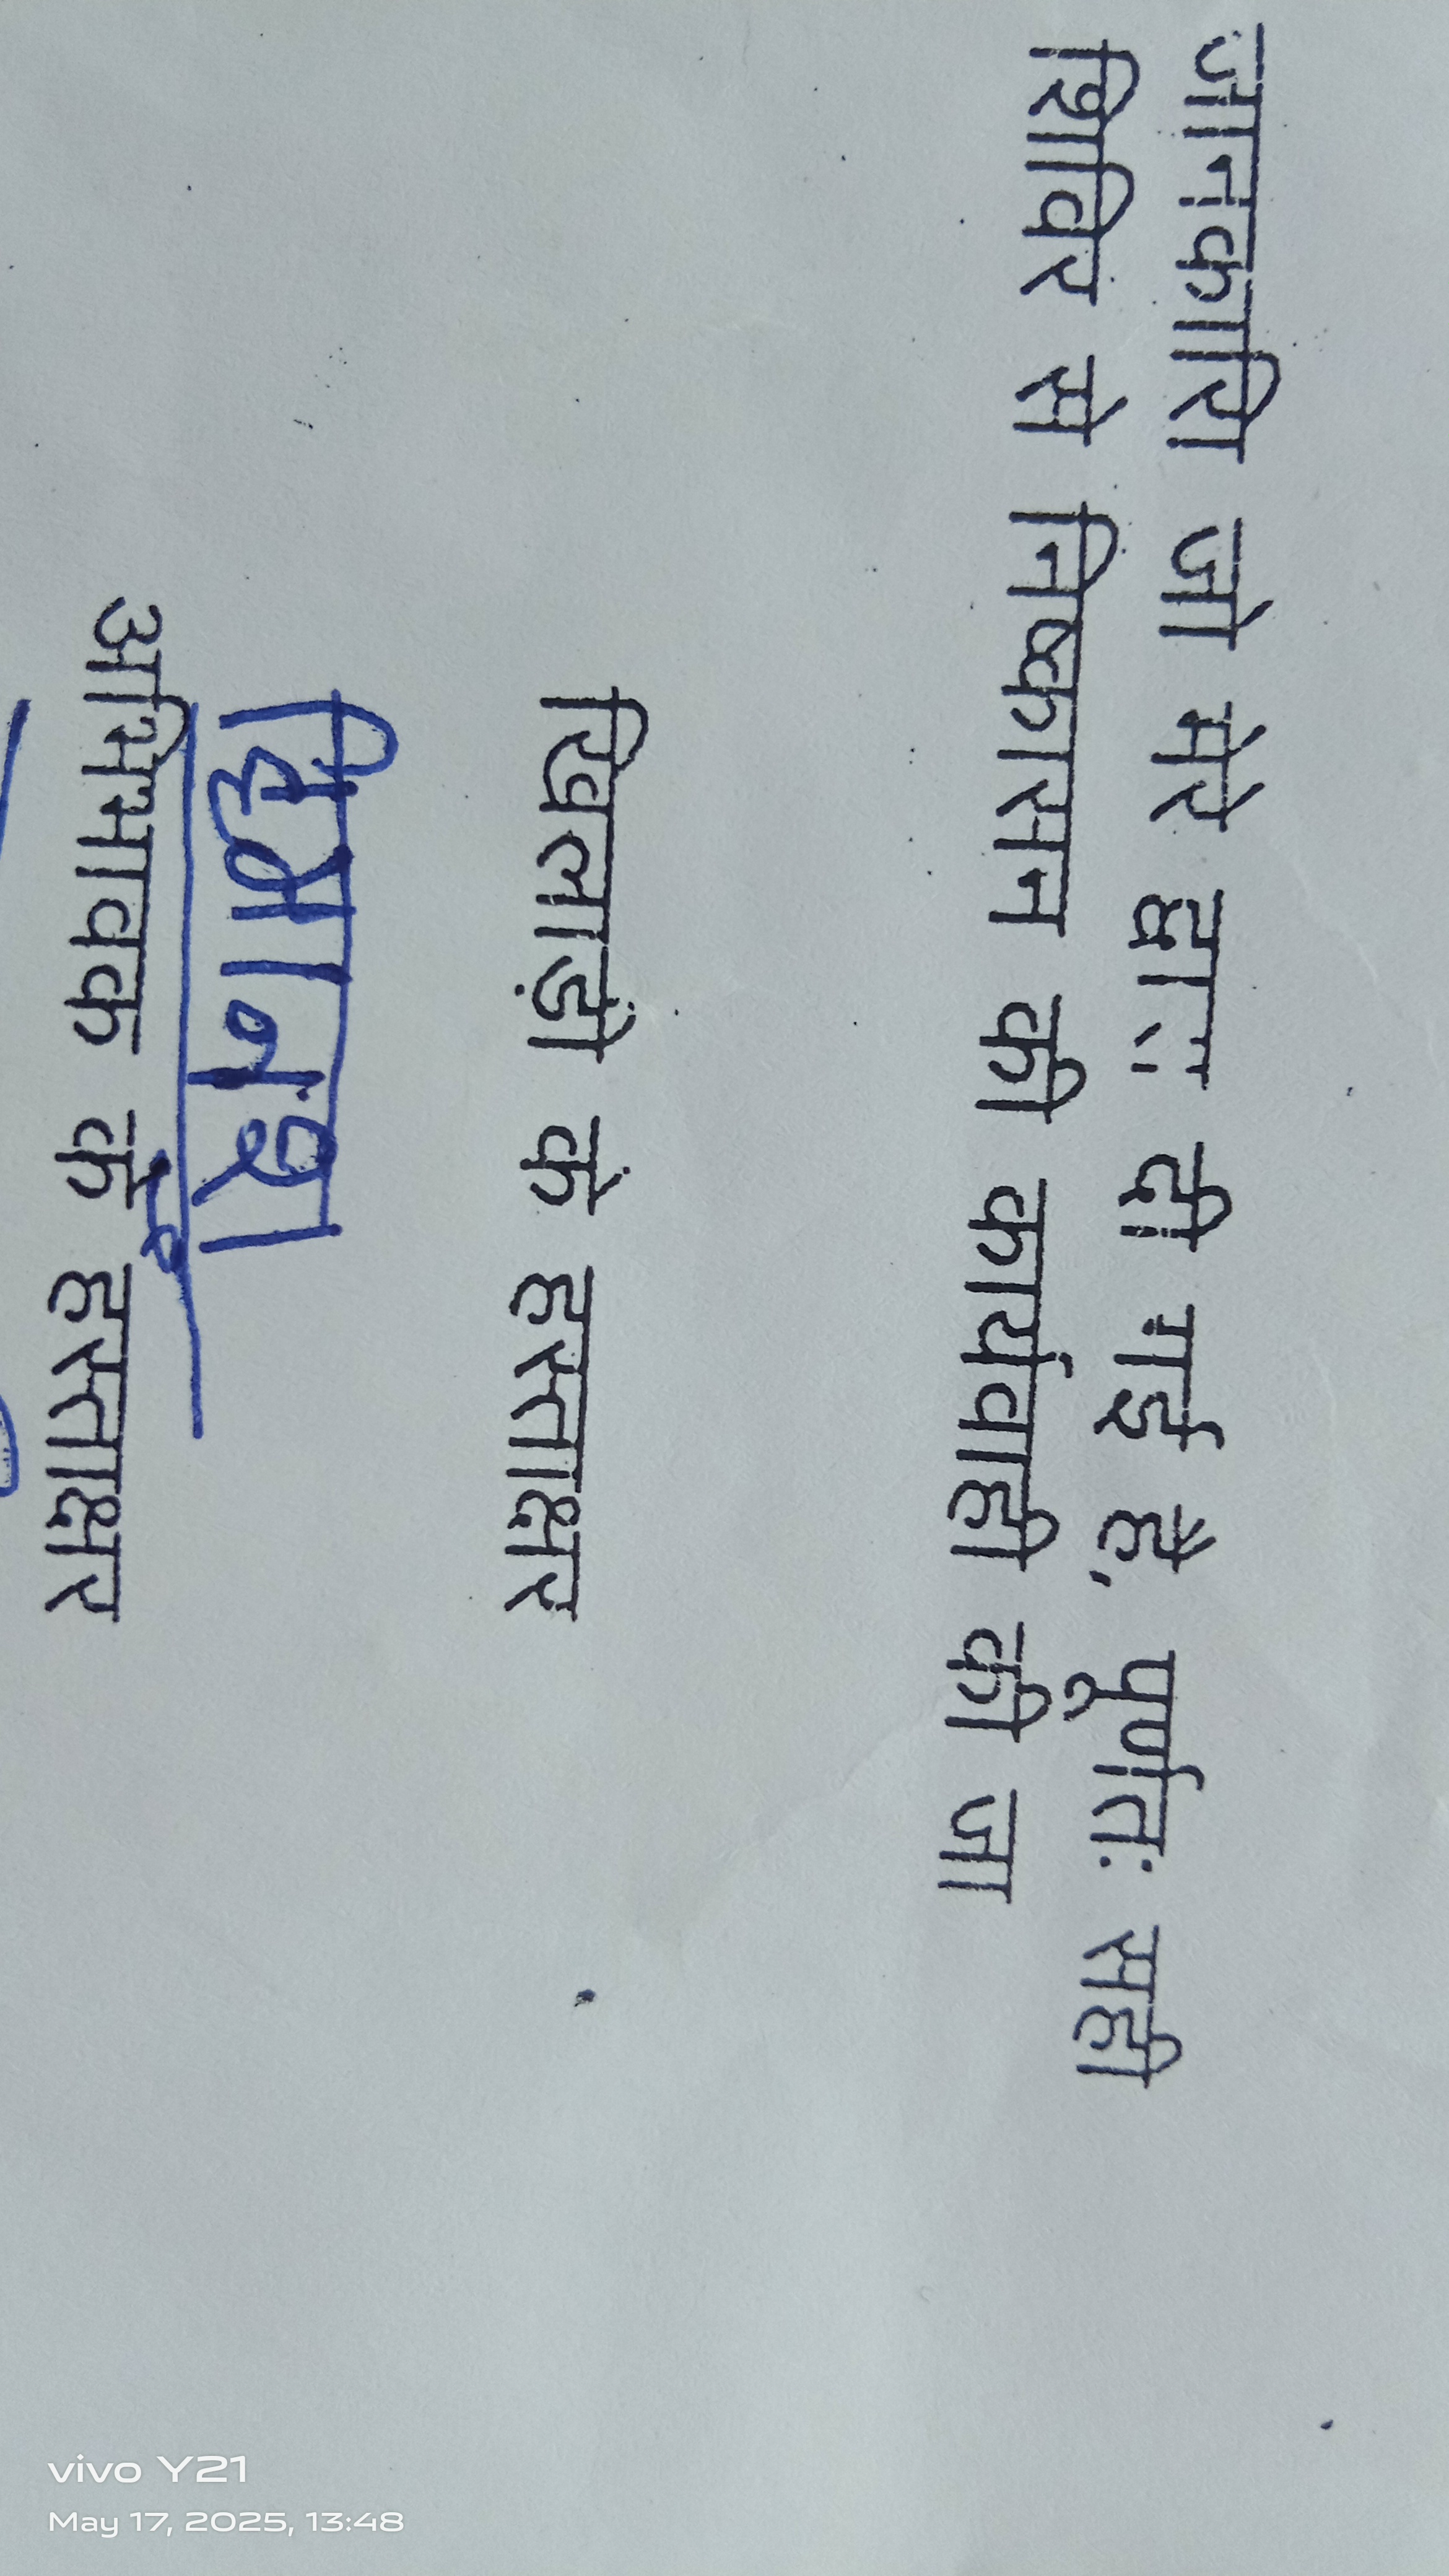 जानकारी जो मेरे द्वारा दी गई है, पूर्णतः सही
शिविर से निष्कासन की कार्यवाही की जा
खिलाड़ी के हस्ताक्षर
हिमानशु
अभिभावक के हस्ताक्षर
vivo Y21
May 17, 2025, 13:48